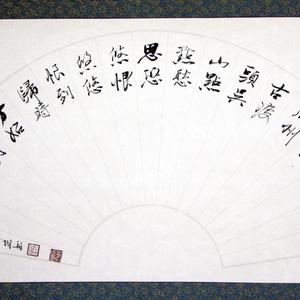 州
古渡
頭吳
山點
點愁
思悠
悠恨
悠悠
恨到
歸時
方始